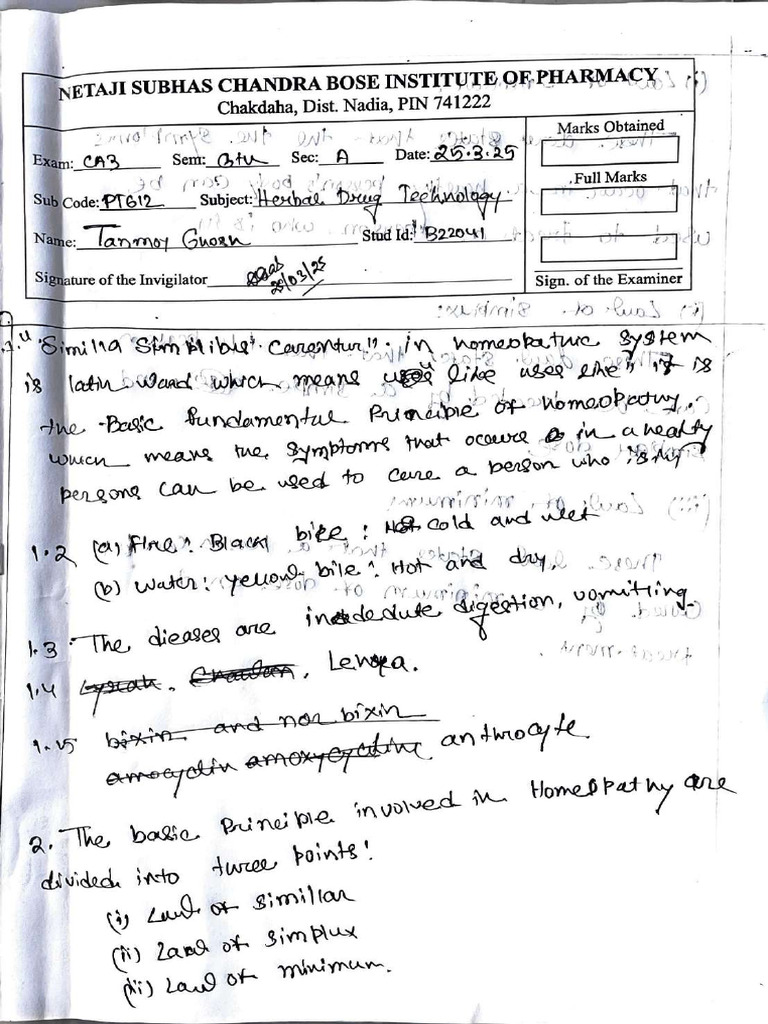 NETAJI SUBHAS CHANDRA BOSE INSTITUTE OF PHARMACY
Chakdaha, Dist. Nadia, PIN 741222
Exam: CA3 Sem: 6th Sec: A Date: 25.3.25
Sub Code: PT612 Subject: Herbal Drug Technology
Name: Tanmoy Ghosh Stud Id: B22041
Signature of the Invigilator 25/03/25
Marks Obtained
Full Marks
Sign. of the Examiner
1.1 "Similia Similibus Carentur". in homeopathic system
is latin word which means like uses like" it is
the Basic fundamental Principle of homeopathy.
which means the symptoms that occurs in a healty
persons can be used to cure a person who is ill
1.2 (a) Fire: Black bile: cold and wet
(b) water: yellow bile: Hot and dry.
1.3 The dieases are digestion, vomitting.
1.4 Lenspa.
1.5 bixin and nor bixin
anthrocyte.
2. The basic Principle involved in Homeopathy are
divided into three points:
(i) Law of simillar
(ii) Law of simplux
(iii) Law of minimum.